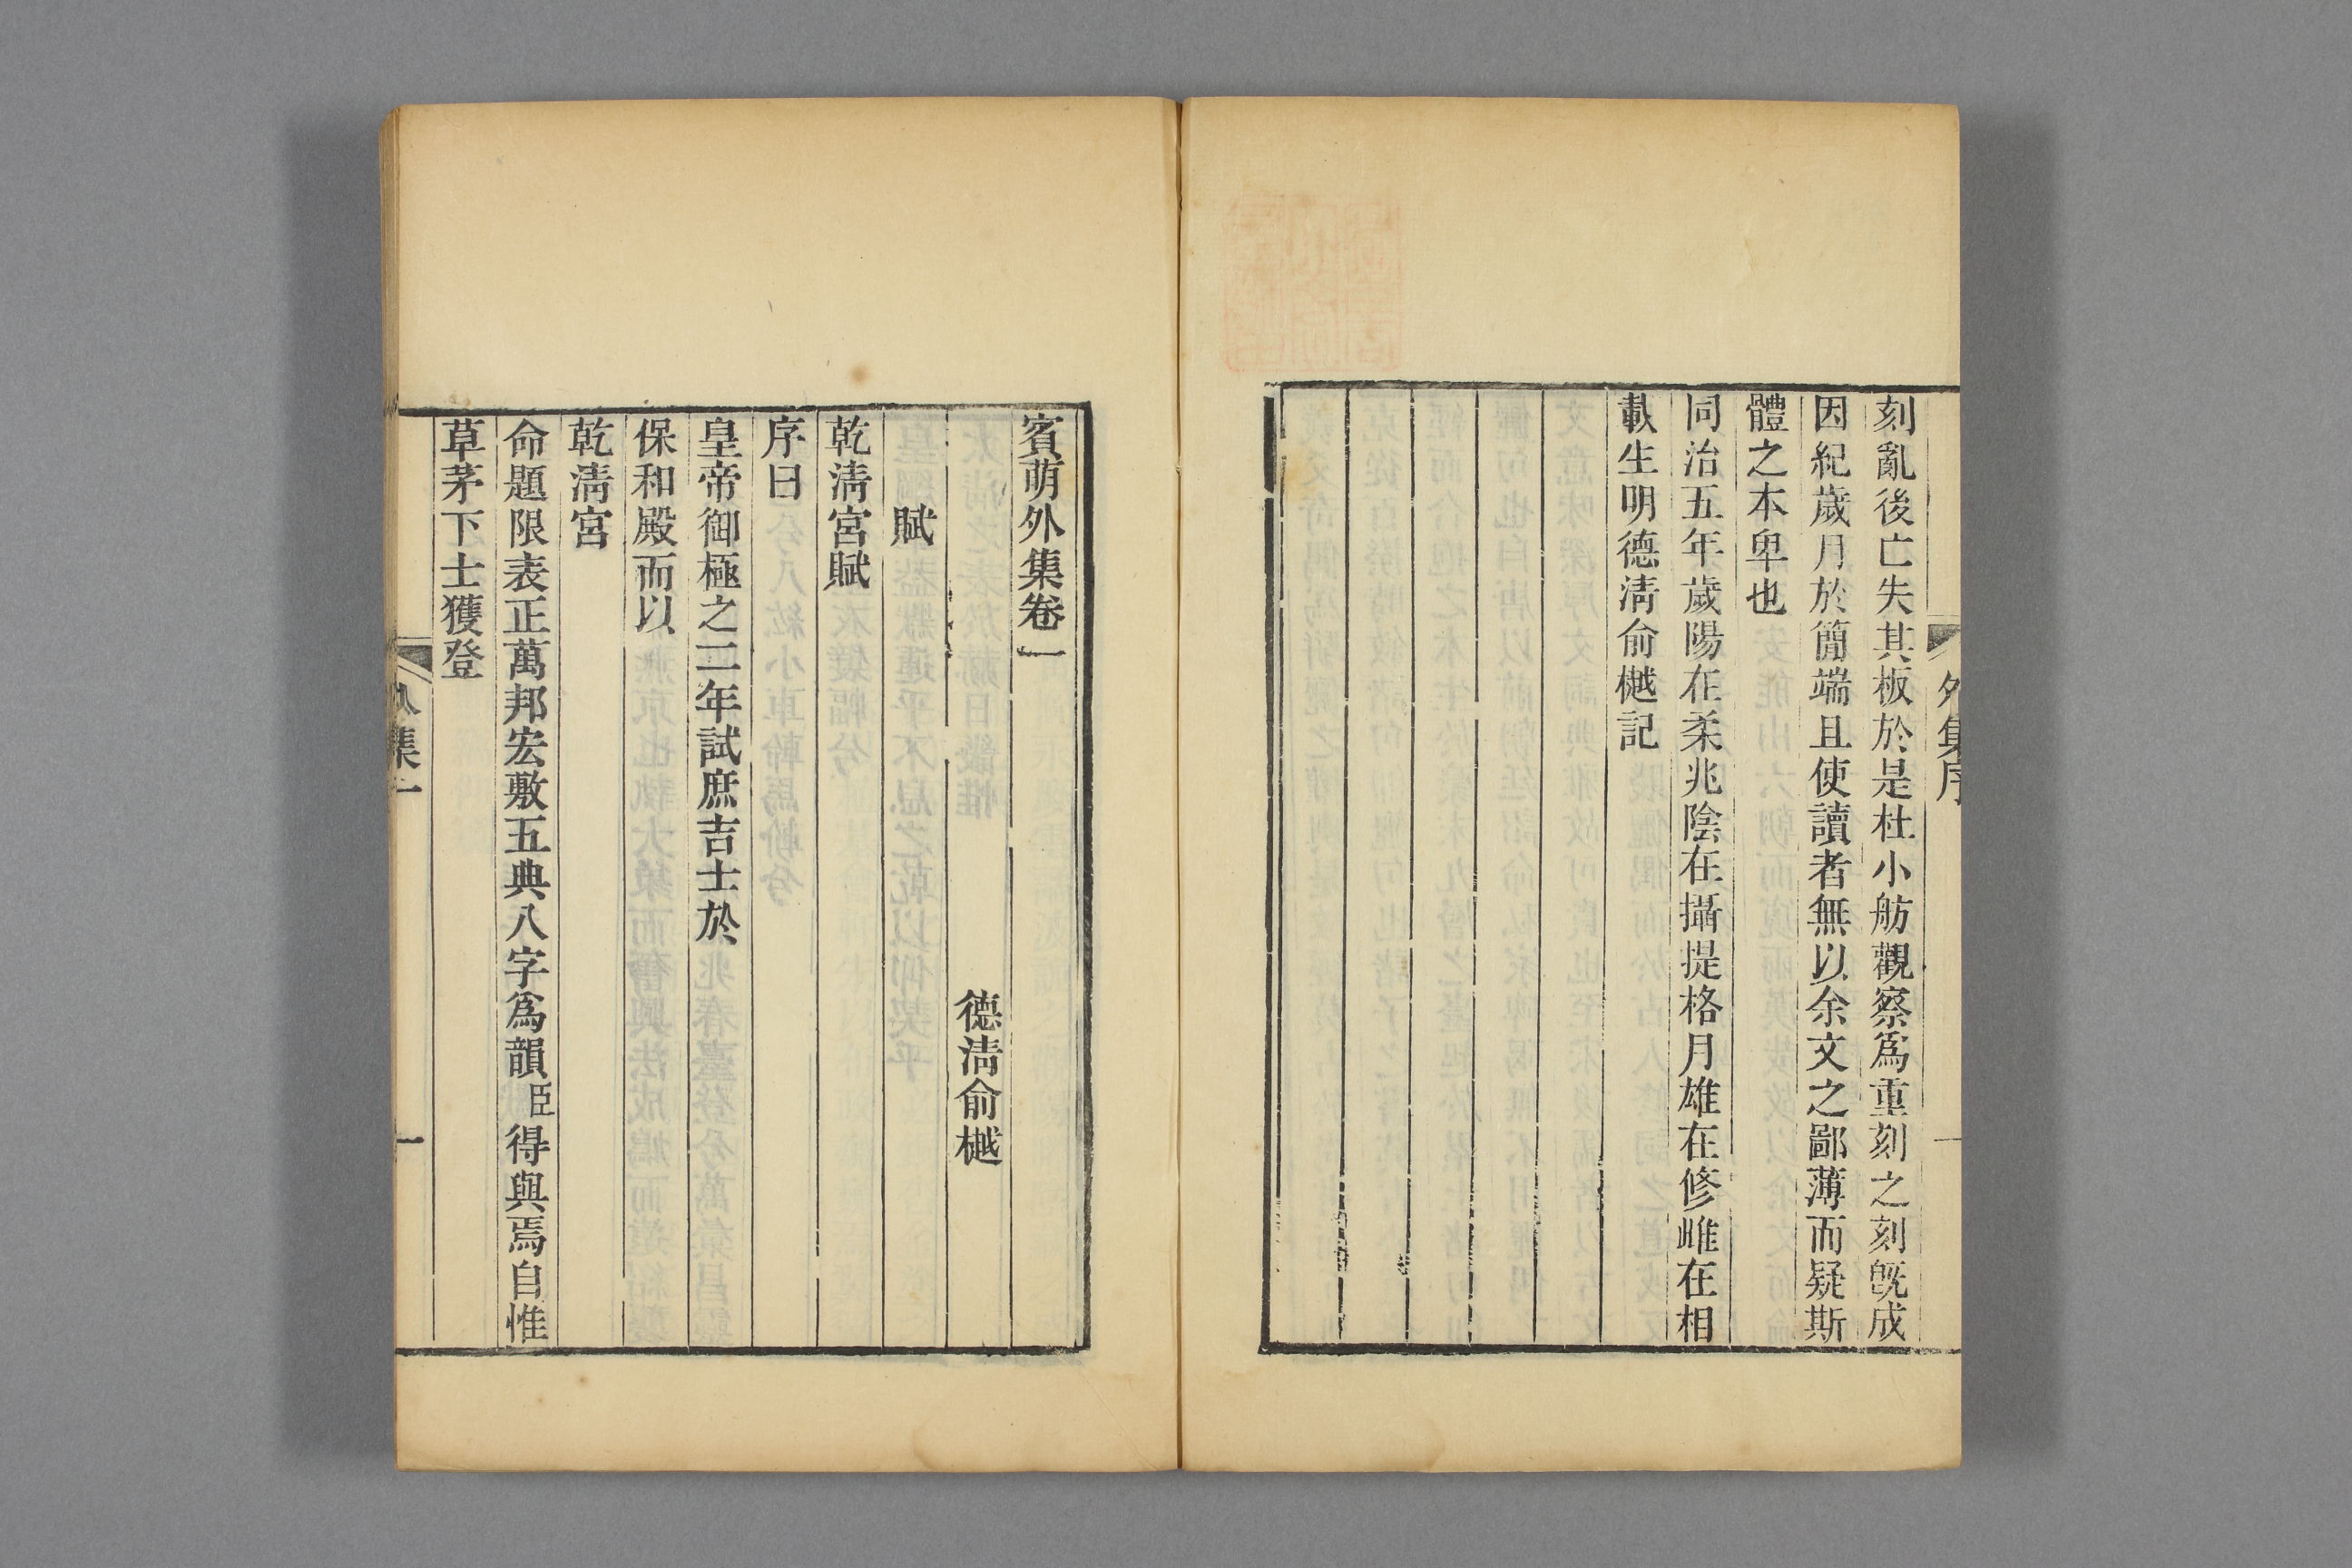 外集序
刻亂後亡失其板於是杜小舫觀察爲重刻之刻旣成
因紀歲月於簡端且使讀者無以余文之鄙薄而疑斯
體之本卑也
同治五年歲陽在柔兆陰在攝提格月雄在修雌在相
載生明德淸俞樾記
賓萌外集卷一
德淸俞樾
賦
乾淸宮賦
序曰
皇帝御極之二年試庶吉士於
保和殿而以
乾淸宮
命題限表正萬邦宏敷五典八字爲韻臣得與焉自惟
草茅下士獲登
集一
一